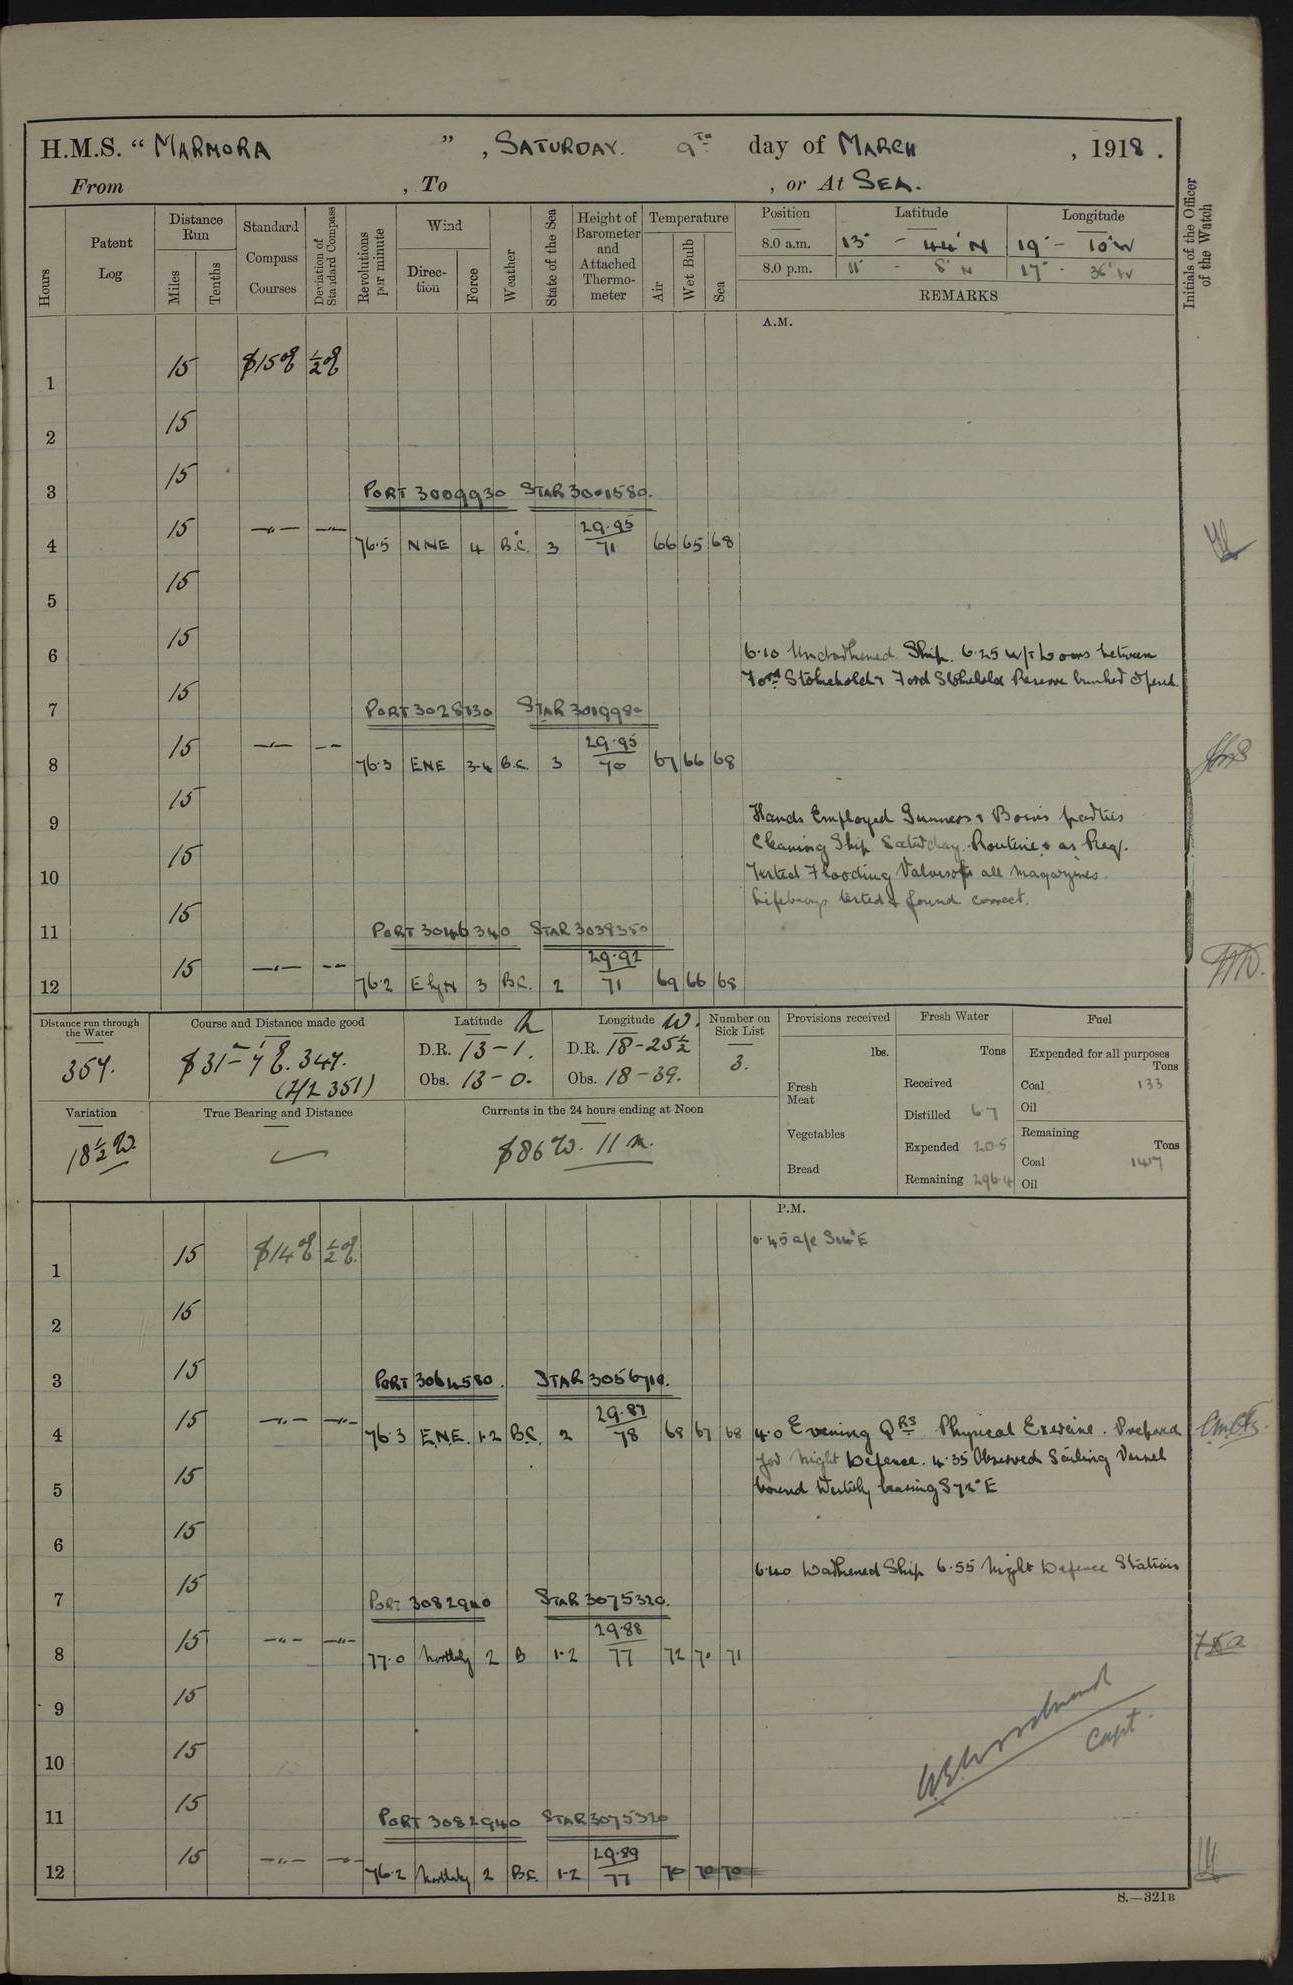 H.M.S. “ MARMORA ”, SATURDAY. 9TH day of MARCH, 1918.
From , To , or At SEA.
Hours
Patent Log
Distance Run
Miles
Tenths
Standard Compass Courses
Deviation of Standard Compass
Revolutions per minute
Wind
Direction
Force
Weather
State of the Sea
Height of Barometer and Attached Thermometer
Temperature
Air
Wet Bulb
Sea
Position Latitude Longitude
8.0 a.m. 13° - 44' N 19° - 10' W
8.0 p.m. 11° - 8' N 17° - 36' W
REMARKS
Initials of the Officer of the Watch
A.M.
1 15 S 15 E ½ E
2 15
3 15
PORT 3009930 STAR 3001580.
4 15 —„— —„— 76.5 NNE 4 B.C. 3 29.95/71 66 65 68
5 15
6 15
6.10 Undarkened Ship. 6.25 W/T Doors between
Ford Stokehold & Ford Stokehold Reserve bunker opend.
7 15
PORT 3028130 STAR 3019980
8 15 —„— —„— 76.3 ENE 3-4 B.C. 3 29.95/70 67 66 68
9 15
Hands Employed Gunners & Bosns parties
Cleaning Ship Saturday Routine & as Req.
10 15
Tested Flooding Valves of all Magazines.
Lifebuoys tested & found correct.
11 15
PORT 3046340 STAR 3038350
12 15 —„— —„— 76.2 E by N 3 B.C. 2 29.92/71 69 66 68
Distance run through the Water
357.
Course and Distance made good
S 31-7 E. 347.
Latitude N
D.R. 13-1.
Obs. 13-0.
Longitude W.
D.R. 18-25½
Obs. 18-39.
Number on Sick List
3.
Provisions received
lbs.
Fresh Meat
Vegetables
Bread
Fresh Water
Tons
Received
Distilled 67
Expended 20.5
Remaining 296.4
Fuel
Expended for all purposes
Tons
Coal 133
Oil
Remaining
Tons
Coal 1417
Oil
Variation
18½ W.
True Bearing and Distance
Currents in the 24 hours ending at Noon
S 86 W. 11 m.
P.M.
0.45 a/c S14°E
1 15 S 14 E ½ E.
2 15
3 15
PORT 3064580. STAR 3056710.
4 15 —„— —„— 76.3 E.N.E. 1-2 B.C. 2 29.87/78 68 67 68
4.0 Evening Qrs Physical Exercise. Prepared
for Night Defence. 4.35 Observed Sailing Vessel
5 15
bound Westerly bearing S72°E
6 15
6.40 Darkened Ship 6.55 Night Defence Stations
7 15
PORT 3082940 STAR 3075320.
8 15 —„— —„— 77.0 Northerly 2 B 1-2 29.88/77 72 70 71
9 15
10 15
Capt.
11 15
PORT 3082940 STAR 3075320
12 15 —„— —„— 76.2 Northerly 2 B.C. 1-2 29.89/77 70 70 70
S.—321B